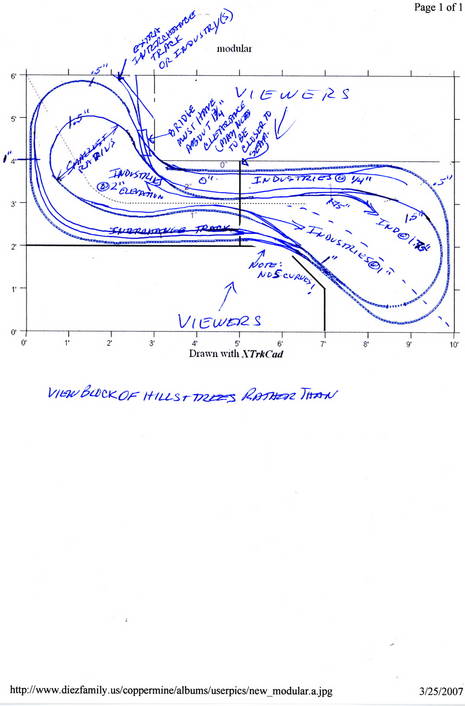 Page 1 of 1
EXTRA
INTERCHANGE
TRACK
OR INDUSTRY(S)
modular
VIEWERS
6'
.5"
BRIDGE
MUST HAVE
ABOUT 1 3/4"
CLEARANCE
(MAY NEED
TO BE
CLOSER TO
5'
1.5"
SMALLEST
RADIUS
1"
4'
0"
INDUSTRIES
@ 2"
ELEVATION
2"
0"
INDUSTRIES @ 1/4"
.5"
3'
1.5"
IND @ 1.75"
1"
INTERCHANGE TRACK
INDUSTRIES @ 1"
2'
NOTE:
NO S CURVES!
1"
1'
VIEWERS
0'
0' 1' 2' 3' 4' 5' 6' 7' 8' 9' 10'
Drawn with XTrkCad
VIEW BLOCK OF HILLS & TREES RATHER THAN
http://www.diezfamily.us/coppermine/albums/userpics/new_modular.a.jpg
3/25/2007